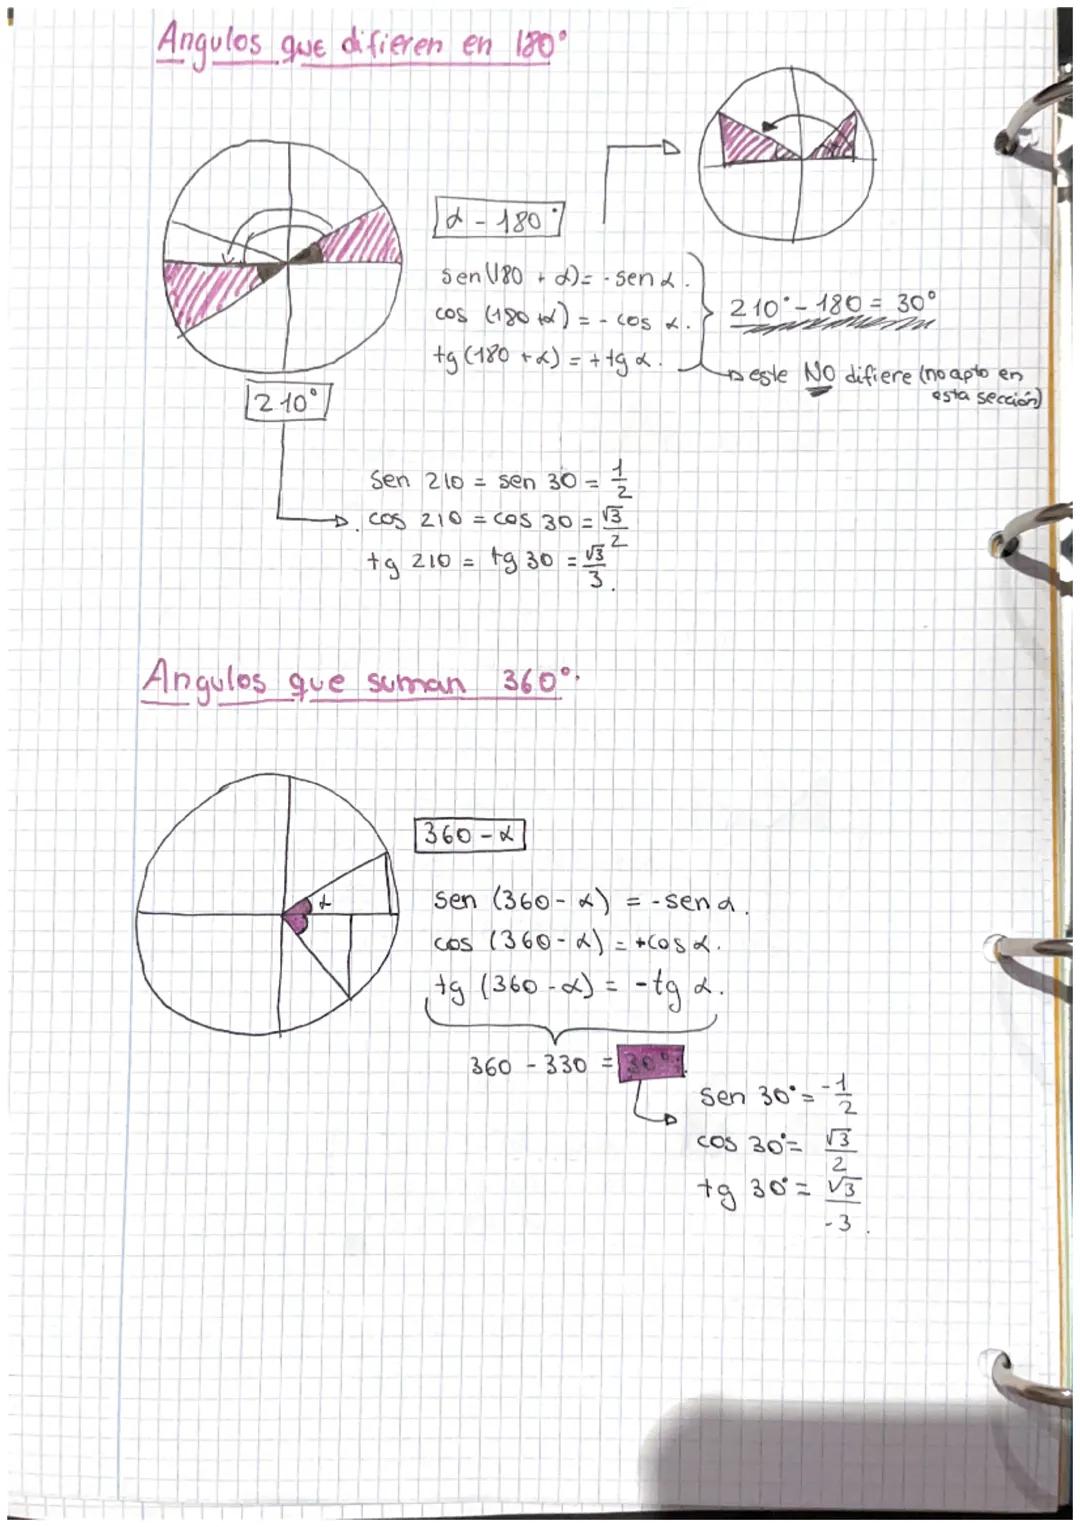 Angulos que difieren en 180°
α - 180°
sen (180 + α) = - sen α.
cos (180 + α) = - cos α.
tg (180 + α) = + tg α.
210° - 180 = 30°
este NO difiere (no apto en
esta sección)
210°
sen 210 = sen 30 = 1/2
cos 210 = cos 30 = √3/2
tg 210 = tg 30 = √3/3.
Angulos que suman 360°.
360 - α
α
sen (360 - α) = - sen α.
cos (360 - α) = + cos α.
tg (360 - α) = - tg α.
360 - 330 = 30°.
sen 30° = -1/2
cos 30° = √3/2
tg 30° = √3/-3.